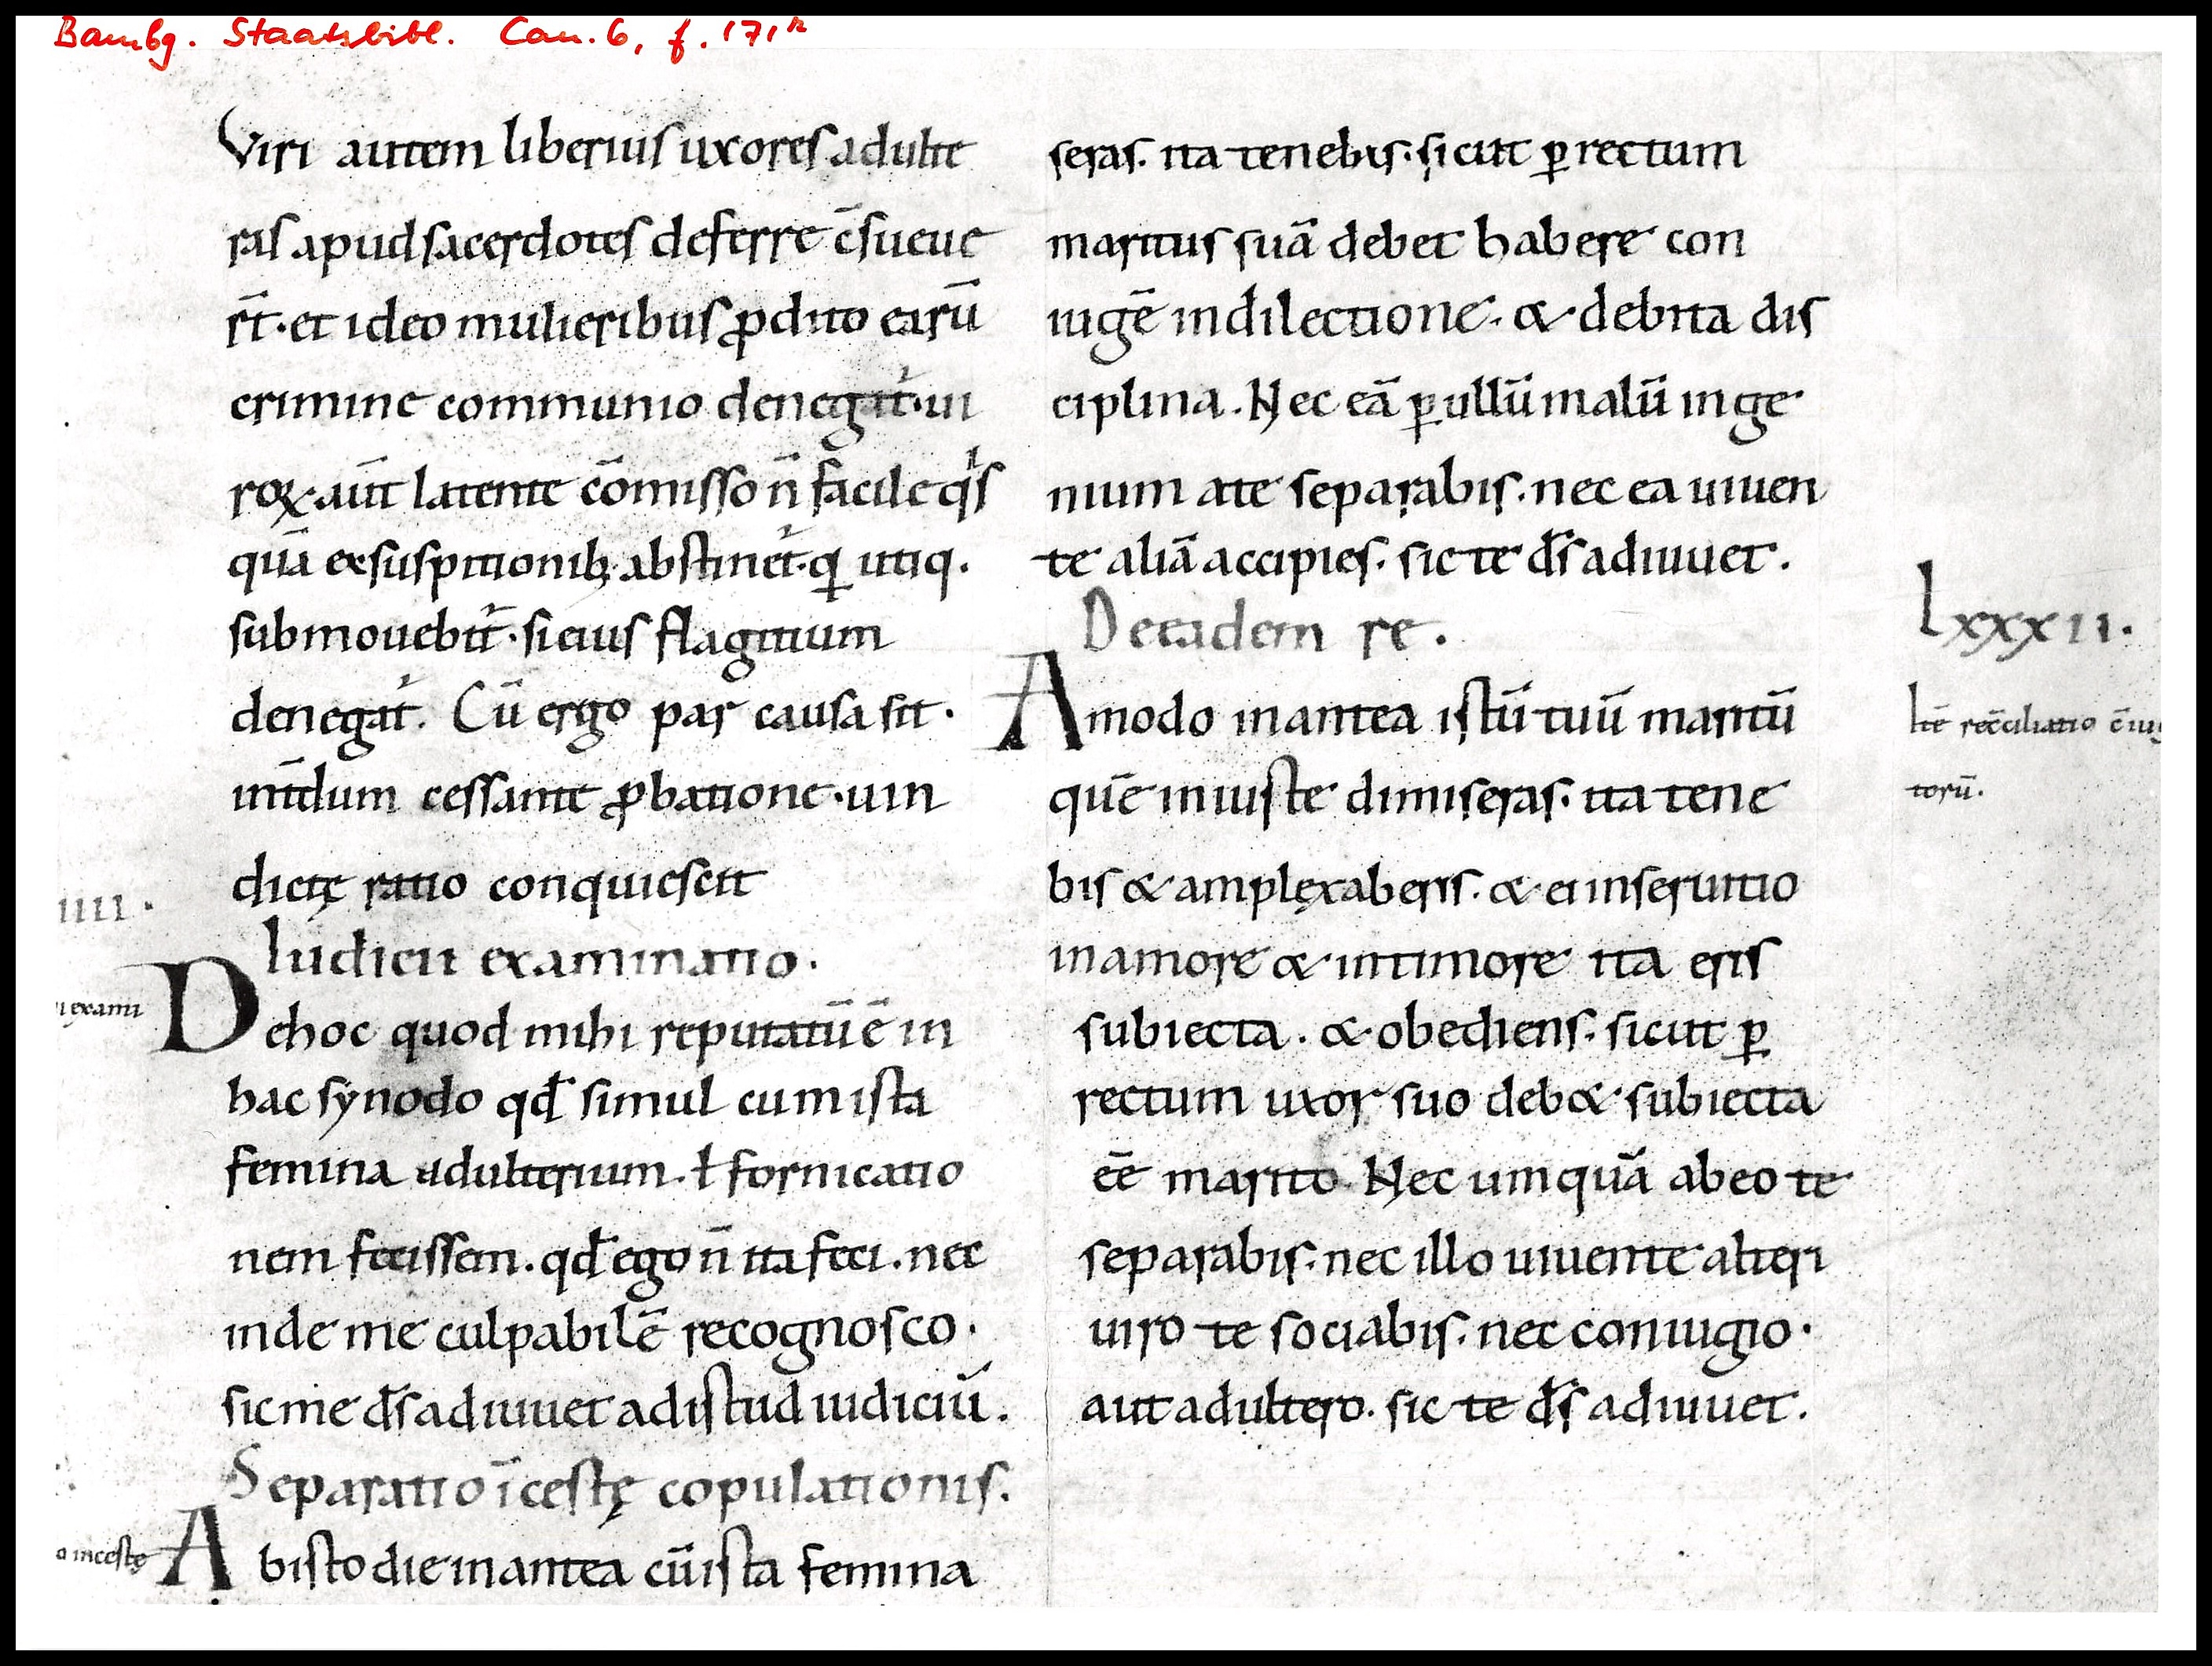 Bambg. Staatsbibl. Can. 6, f. 171ʳ
Viri autem liberius uxores adulte
ras apud sacerdotes deferre c̄sueue
rt̄· et ideo mulieribus ꝓdito earū
crimine communio denegat᷑· ui
roꝝ· aūt latente cōmisso n̄ facile qͥs
quā ex suspitionibꝫ abstinet᷑· qͥ utiq·
submouebit᷑· si eius flagitium
denegat᷑. Cū ergo par causa sit·
int̄dum cessante ꝓbatione· uin
dictę ratio conquiescit
IIII.
Iudicii examinatio.
i exami
De hoc quod mihi reputatū ē in
hac synodo qđ simul cum ista
femina adulterium· ł fornicatio
nem fecissem. qđ ego n̄ ita feci. nec
inde me culpabilē recognosco·
sic me d̄s adiuuet ad istud iudiciū.
Separatio īcestę copulationis.
o incestę
Ab isto die in antea cū ista femina
seras. ita tenebis· sicut ꝑ rectum
maritus suā debet habere con
iugē in dilectione. & debita dis
ciplina. Nec eā ꝑ ullū malū inge
nium a te separabis. nec ea uiuen
te aliā accipies. sic te d̄s adiuuet.
De eadem re.
Lxxxii.
Amodo in antea istū tuū maritū
Itē rec̄ciliatio c̄iug
torū.
quē iniuste dimiseras. ita tene
bis & amplęxaberis. & ei in seruitio
in amore & in timore ita eris
subiecta. & obediens. sicut ꝑ
rectum uxor suo deb& subiecta
ēē marito. Nec umquā ab eo te
separabis. nec illo uiuente alteri
uiro te sociabis. nec coniugio·
aut adultero. sic te d̄s adiuuet.